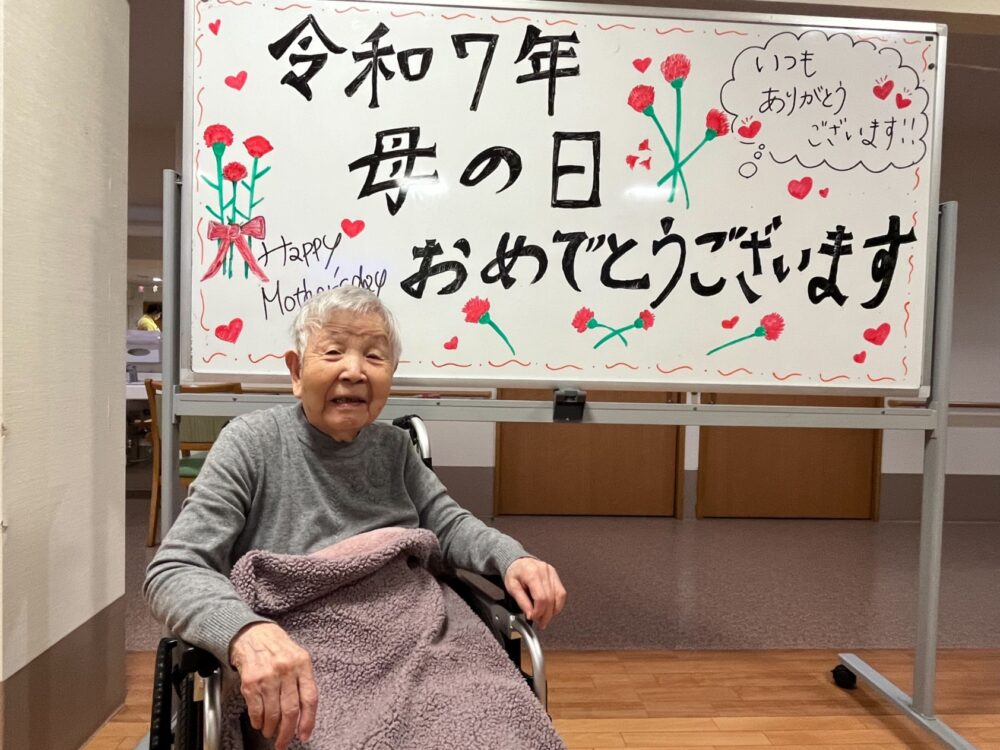 令和7年
母の日
おめでとうございます
いつも
ありがとう
ございます!!
Happy
Mother's day